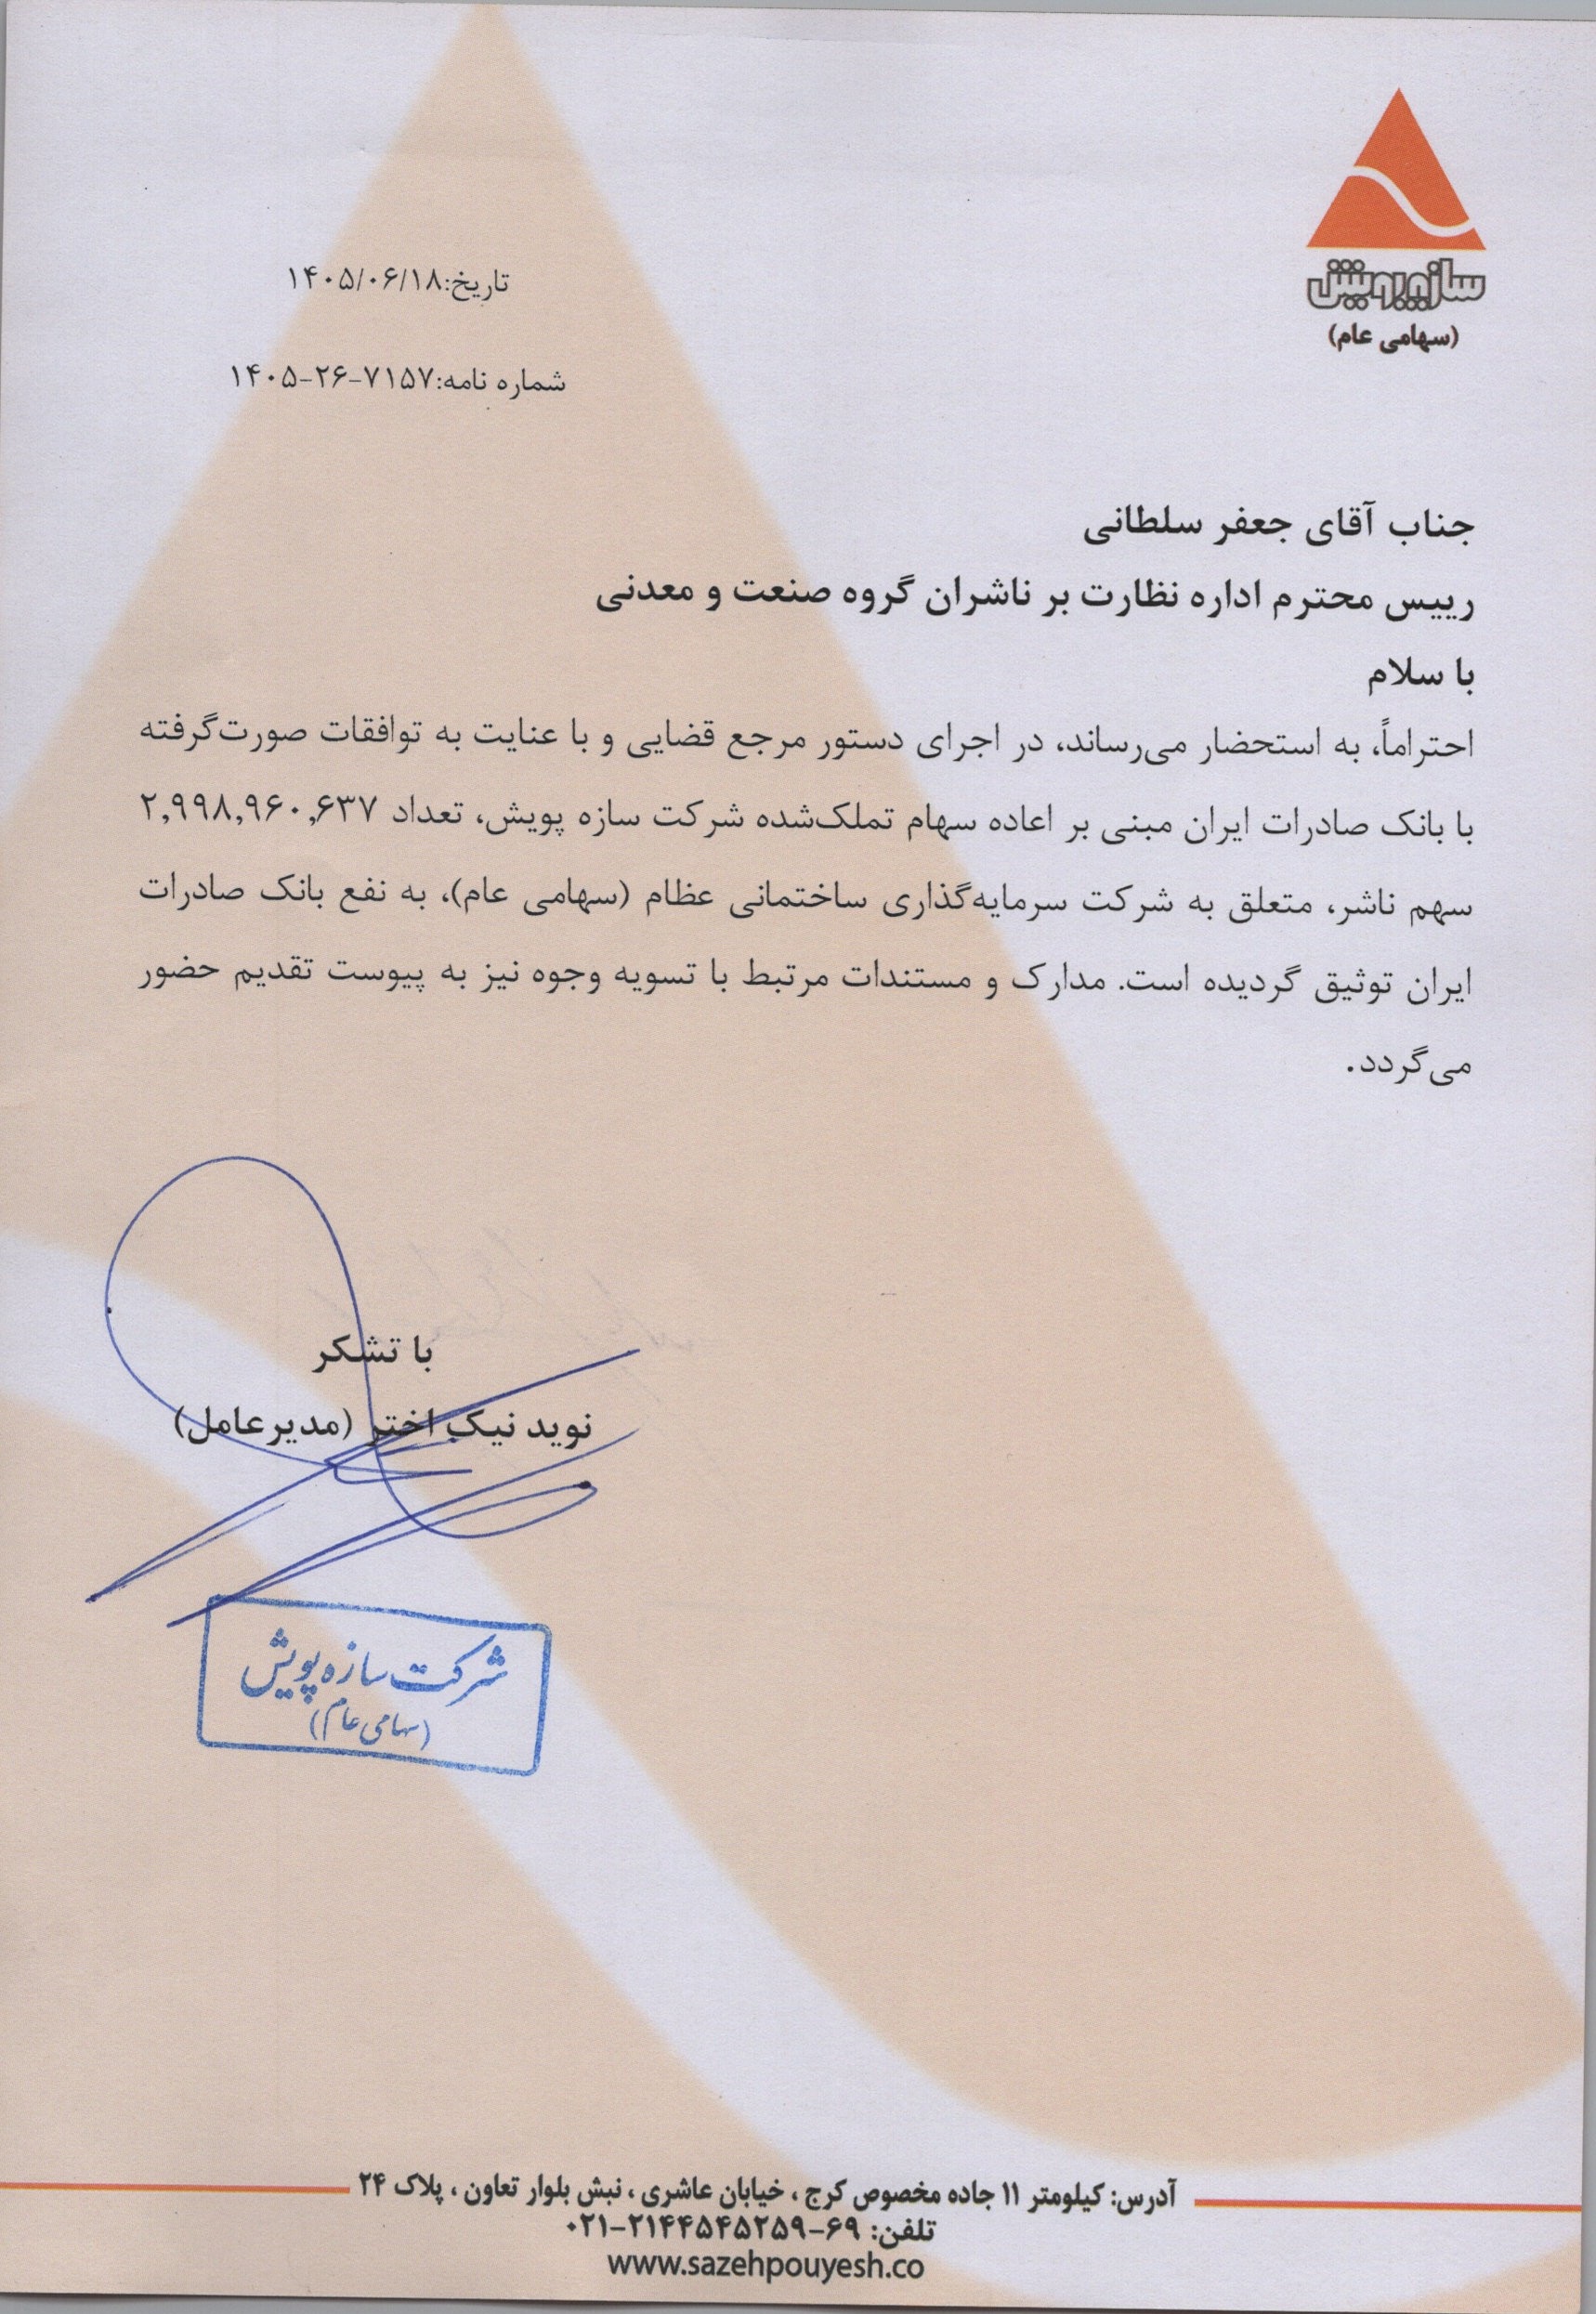 سازه پویش
(سهامی عام)
تاریخ:۱۴۰۵/۰۶/۱۸
شماره نامه:۷۱۵۷-۲۶-۱۴۰۵
جناب آقای جعفر سلطانی
رییس محترم اداره نظارت بر ناشران گروه صنعت و معدنی
با سلام
احتراماً، به استحضار می‌رساند، در اجرای دستور مرجع قضایی و با عنایت به توافقات صورت‌گرفته
با بانک صادرات ایران مبنی بر اعاده سهام تملک‌شده شرکت سازه پویش، تعداد ۲,۹۹۸,۹۶۰,۶۳۷
سهم ناشر، متعلق به شرکت سرمایه‌گذاری ساختمانی عظام (سهامی عام)، به نفع بانک صادرات
ایران توثیق گردیده است. مدارک و مستندات مرتبط با تسویه وجوه نیز به پیوست تقدیم حضور
می‌گردد.
با تشکر
نوید نیک اختر (مدیرعامل)
شرکت سازه پویش
(سهامی عام)
آدرس: کیلومتر ۱۱ جاده مخصوص کرج ، خیابان عاشری ، نبش بلوار تعاون ، پلاک ۲۴
تلفن: ۶۹-۲۱۴۴۵۴۵۲۵۹-۰۲۱
www.sazehpouyesh.co